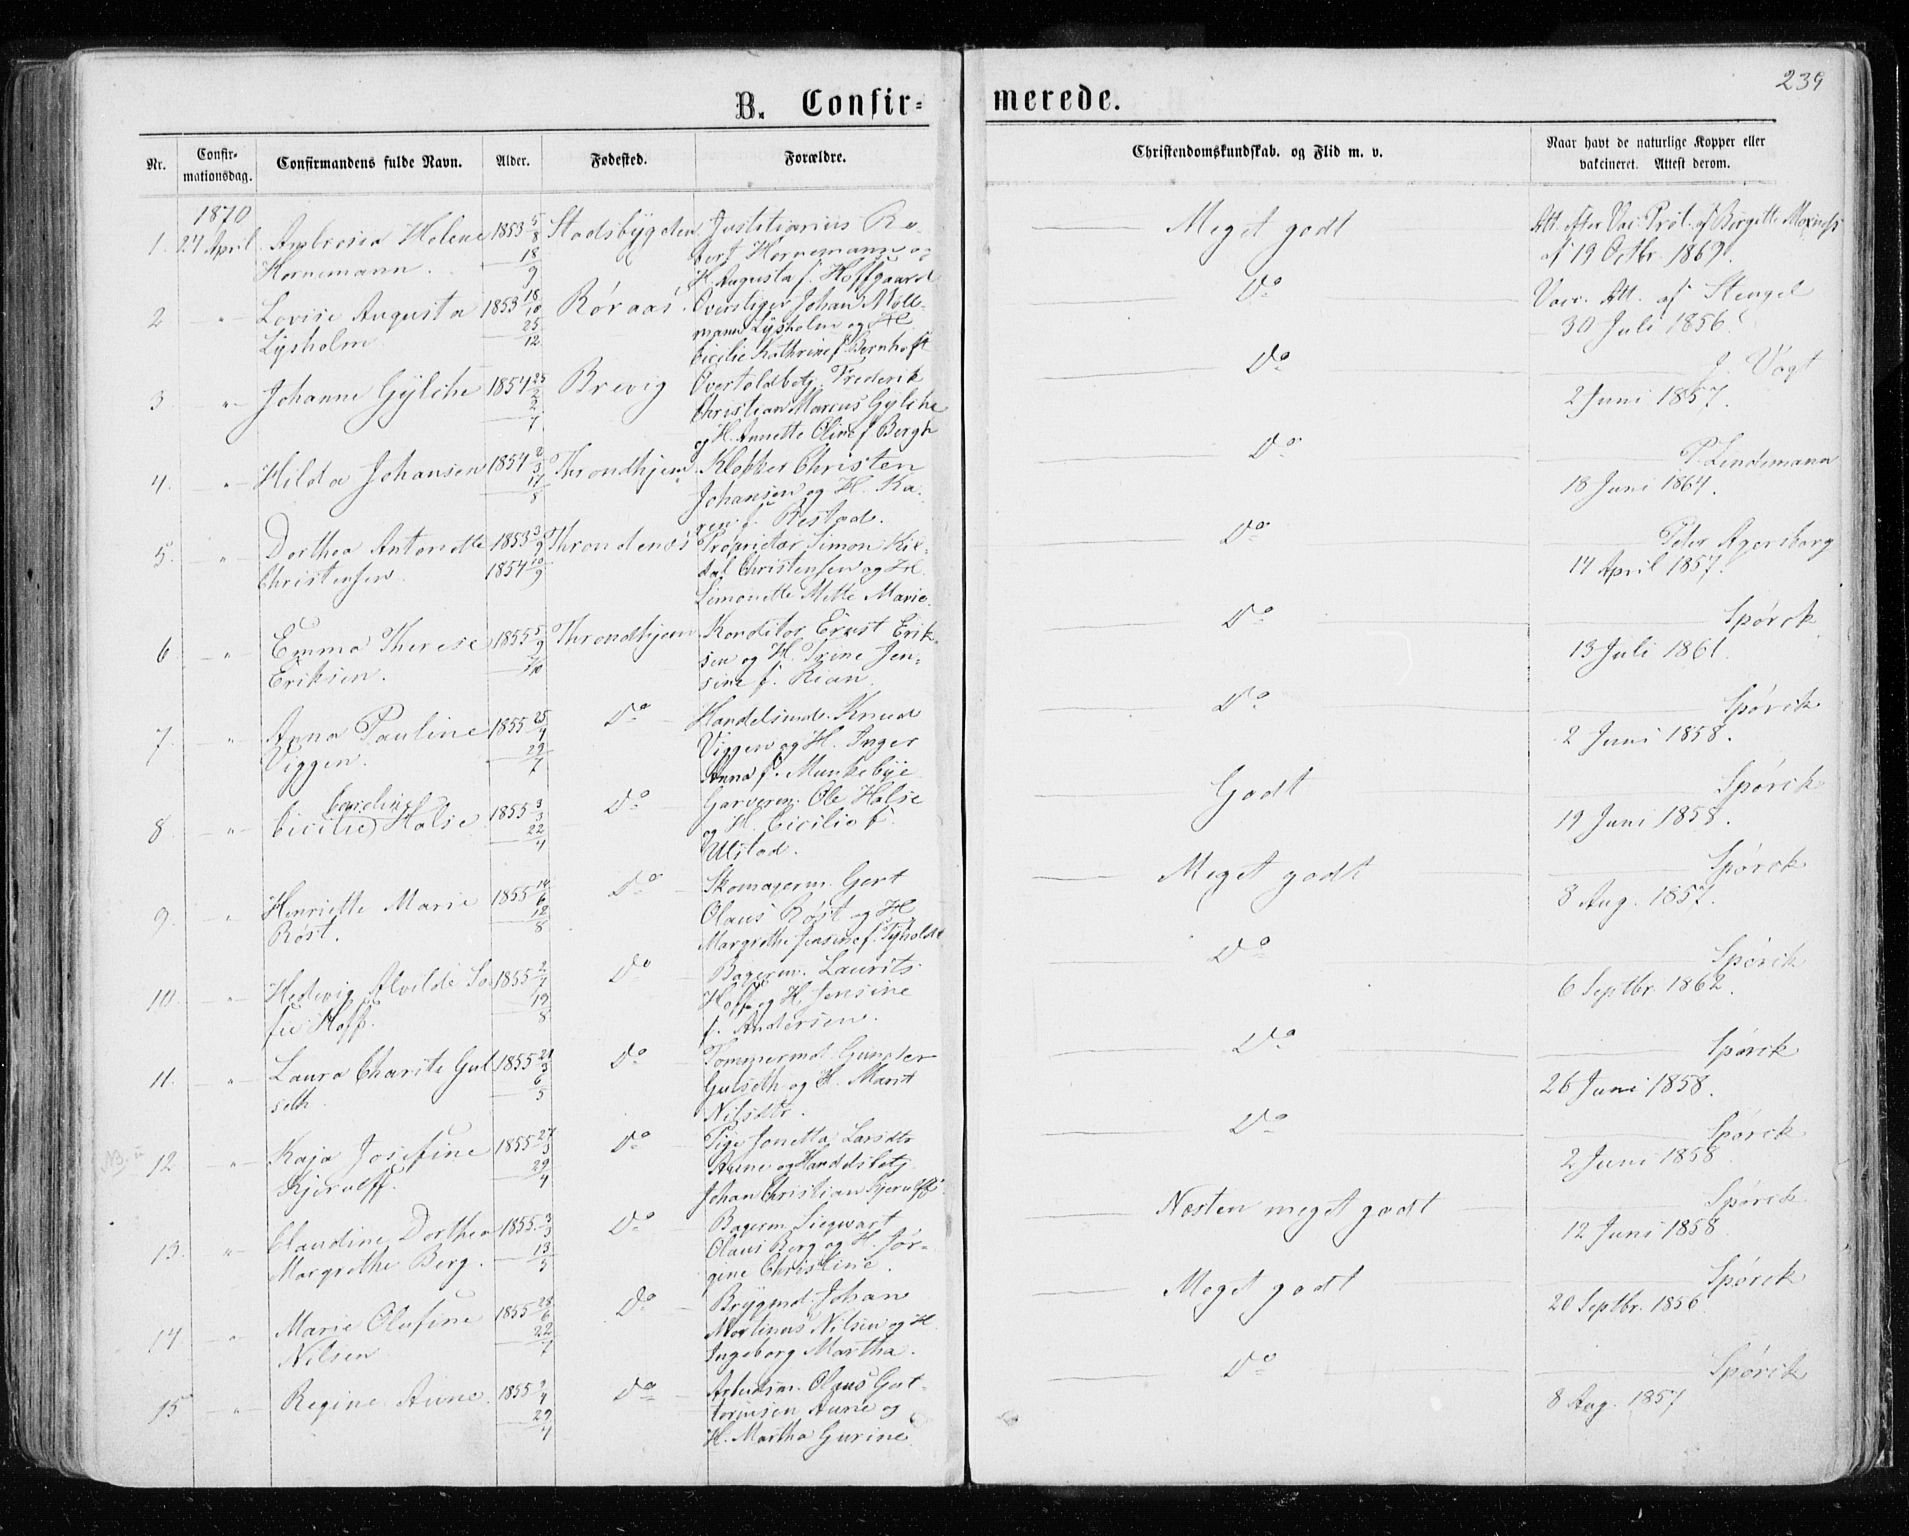 239
B. Confir- merede.
Nr. Confir-mationsdag. Confirmandens fulde Navn. Alder. Fødested. Forældre. Christendomskundskab. og Flid m. v. Naar havt de naturlige Kopper eller vakcineret. Attest derom.
1870
1. 24 April Ambrosia Helene 1853 5/8 Stadsbygden Justitiarius Ro- Meget godt Att. efter Vac. Prot. af Bergitte Moxness
Hornemann. 18/9 bert Hornemann og af 19 Octbr. 1869.
H. Augusta f. Hoffgaard
2 " Lovise Augusta 1853 18/10 Røraas. Overstiger Johan Møll- Do Vacc. Att. af Stengel
Lysholm 25/12 mann Lysholm og H. 30 Juli 1856.
Cicilie Kathrine f. Bernhoft
3 " Johanne Gylche 1854 25/2 Brevig Overtoldbetj. Frederik Do J. Vogt
2/7 Christian Marcus Gylche 2 Juni 1857.
og H. Annette Oline f Bergh
4. " Hilda Johansen 1854 2/3 Throndhjem Klokker Christen Do P. Lindemann
17/8 Johansen og H. Ka- 18 Juni 1864.
ren f. Restad.
5. " Dorthea Antonette 1853 3/9 Throndenæs Proprietær Simon Kil- Do Peter Agersborg
Christensen. 1854 10/9 dal Christensen og H. 14 April 1857.
Simonette Mette Marie.
6 " Emma Therese 1855 5/9 Throndhjem Konditor Ernst Erik- Do Spørck
Eriksen. 7/10 sen og H. Trine Jen- 13 Juli 1861.
sine f. Rian.
7. " Anna Pauline 1855 25/4 Do Handelsmd. Knud Do Spørck
Viggen. 29/7 Viggen og H. Inger 2 Juni 1858.
Anna f. Munkebye
8. " Cicilie Caroline Halse 1855 3/3 Do Garverm. Ole Halse Godt Spørck
22/4 og H. Cicilie f. 19 Juni 1858.
Ulstad.
9. " Henriette Marie 1855 14/6 Do Skomagerm. Gert Meget godt Spørck
Røst. 12/8 Olaus Røst og H. 8 Aug. 1857.
Margrethe Jensine f. Tyholdt
10. " Hedevig Alvilde So- 1855 2/7 Do Bagerm. Laurits Do Spørck
fie Hoff. 19/8 Hoff og H. Jensine 6 Septbr. 1862.
f. Andersen.
11. " Laura Charite Gul- 1855 21/3 Do Tømmermd. Gunder Do Spørck
seth. 6/5 Gulseth og H. Marit 26 Juni 1858.
Nilsdtr.
12 " Kaja Josefine 1855 27/3 Do Pige Jonetta Larsdtr Do Spørck
Kjerulff. 29/4 Aune og Handelsbetj. 2 Juni 1858
Johan Christian Kjerulff
13. " Claudine Dorthea 1855. 3/3 Do Bagerm. Siegwart Næsten meget godt Spørck
Margrethe Berg. 13/5 Olaus Berg og H. Jør- 12 Juni 1858
gine Christine.
14 " Marie Olufine 1855 28/6 Do Brygmd. Johan Meget godt Spørck
Nilsen 22/7 Martinus Nilsen og H. 20 Septbr. 1856.
Ingeborg Martha.
15 " Regine Aune. 1855 2/4 Do Arbeidsm. Olaus Gut- Do Spørck
29/4 tormsen Aune og 8 Aug. 1857
H. Martha Gurine